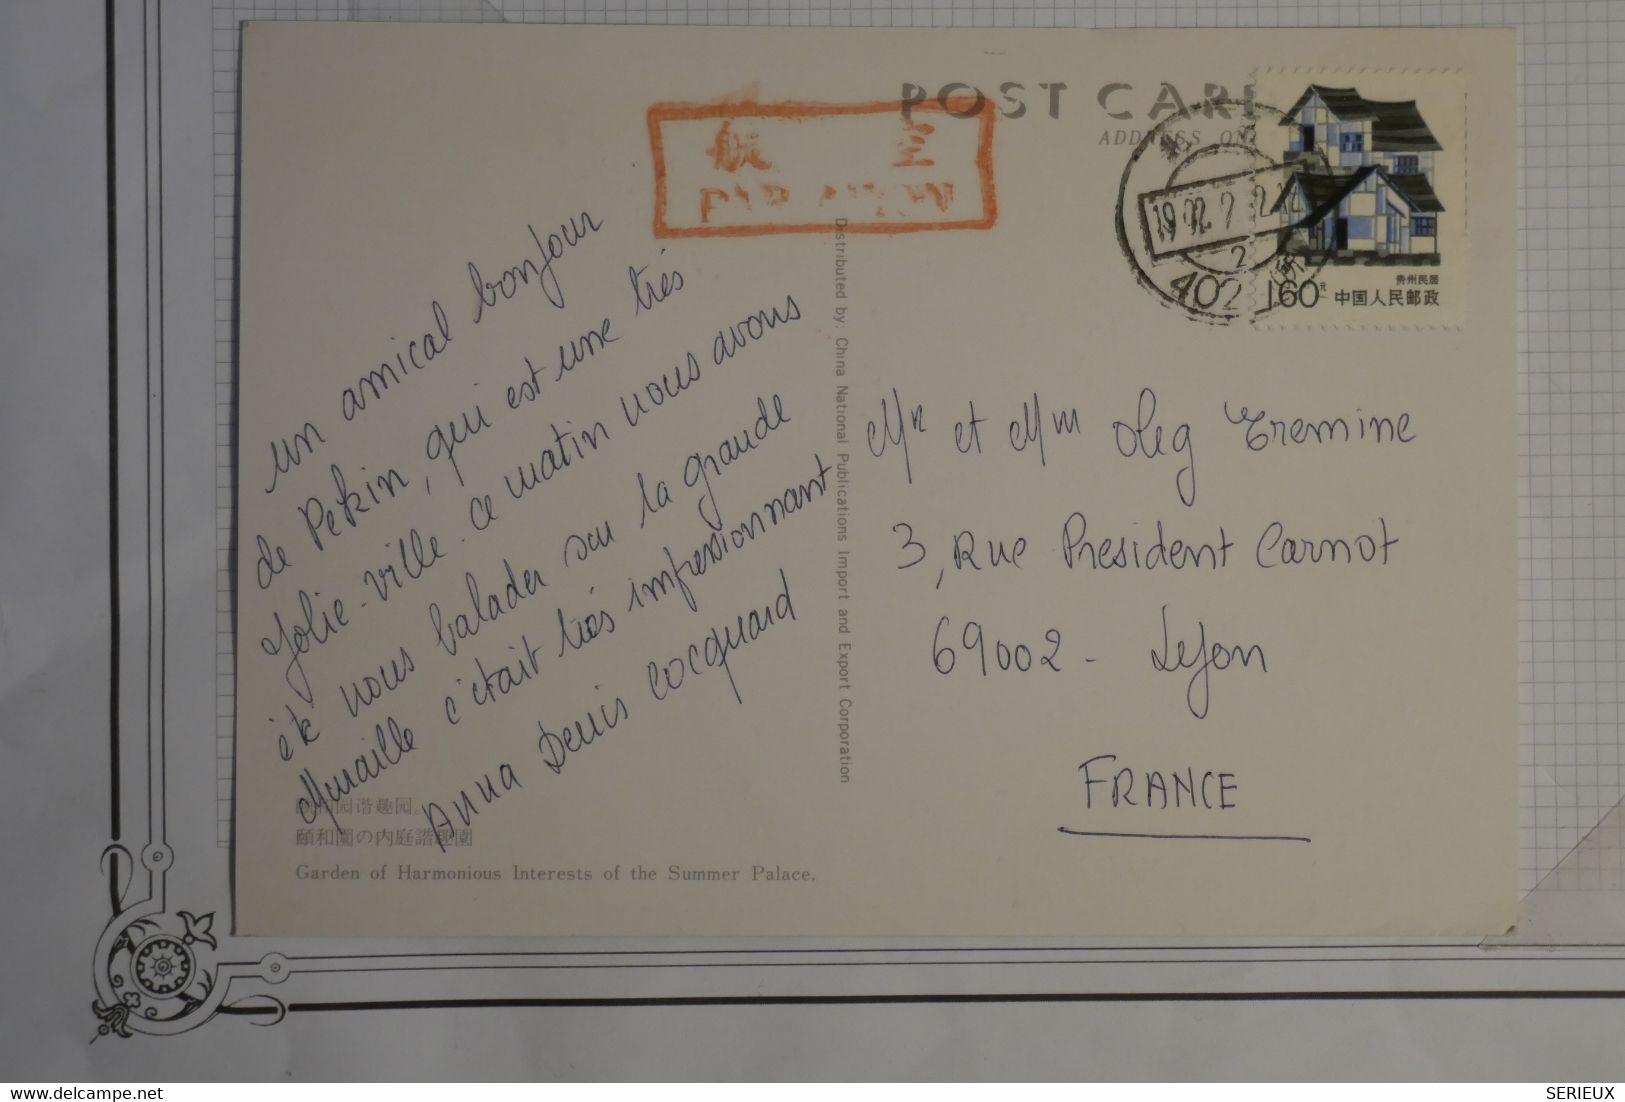 POST CARD
ADDRESS ON
航 空
PAR AVION
1992
2
402
160
贵州民居
中国人民邮政
un amical bonjour
de Pékin, qui est une très
jolie ville. ce matin nous avons
été nous balader sur la grande
Muraille c'était très impressionnant
Anna Denis Cocquard
Distributed by: China National Publications Import and Export Corporation
Mr et Mm Oleg Eremine
3, Rue President Carnot
69002 - Lyon
FRANCE
颐和园谐趣园。
頤和園の内庭諧趣園
Garden of Harmonious Interests of the Summer Palace.
delcampe.net
SERIEUX